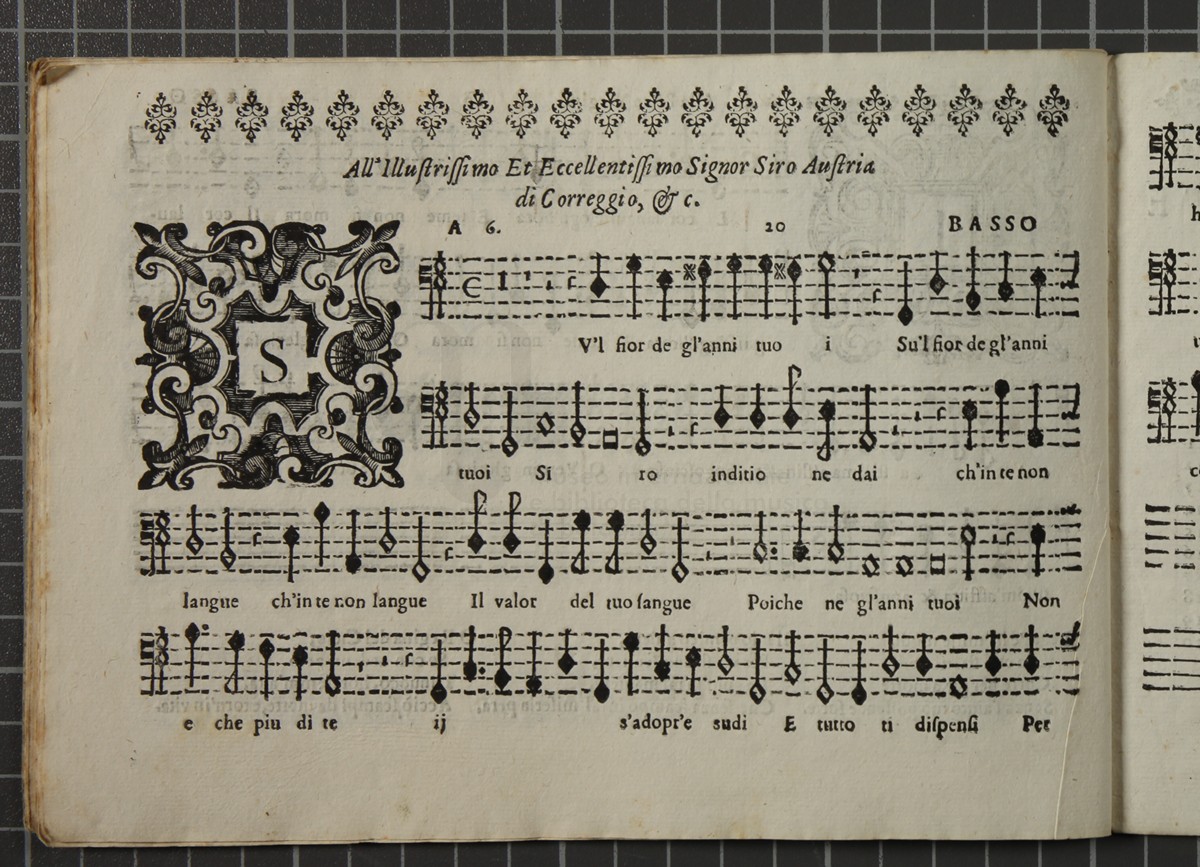 All'Illustrissimo Et Eccellentissimo Signor Siro Austria
di Correggio, & c.
A 6. 20 BASSO
S
V'l fior de gl'anni tuo i Su'l fior de gl'anni
tuoi Si ro inditio ne dai ch'in te non
langue ch'in te non langue Il valor del tuo sangue Poiche ne gl'anni tuoi Non
e che piu di te ij s'adopr'e sudi E tutto ti dispensi Per